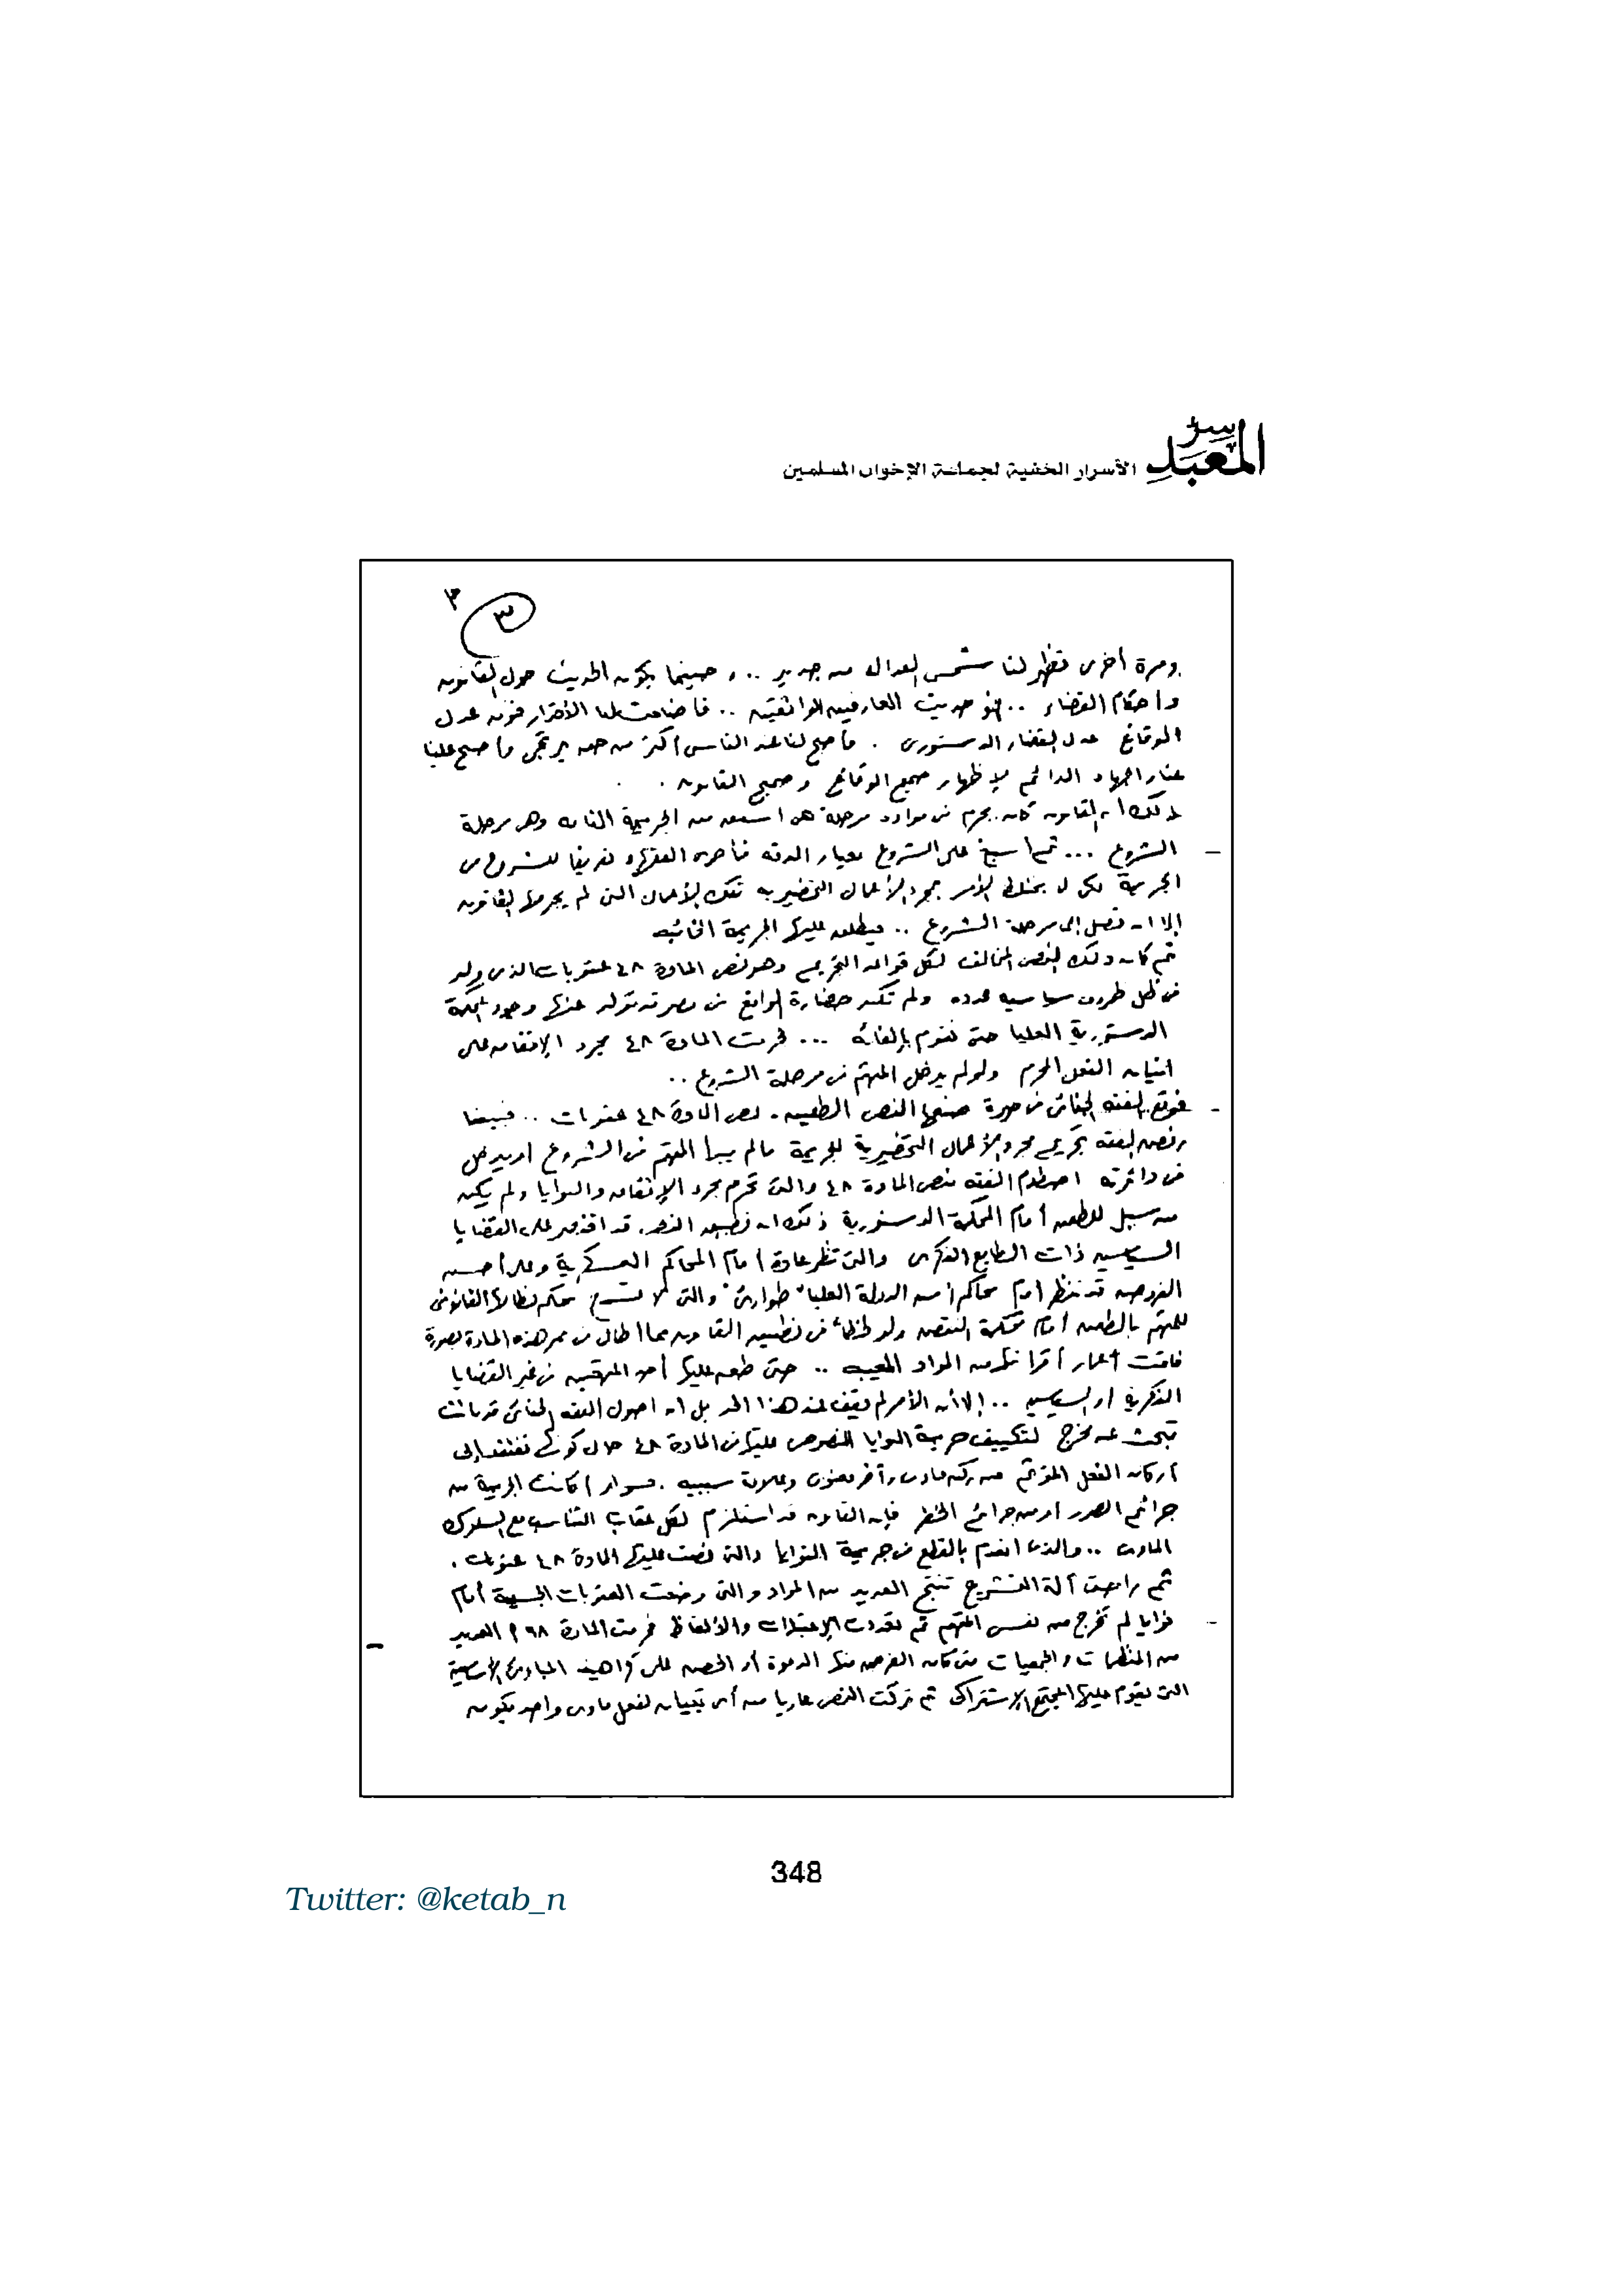 سر
المعبد
الأسرار الخفية لجماعة الإخوان المسلمين
٣
٣
ومرة أخرى تظهر لنا شمس العدالة من جديد .. وحينما يكون الحديث حول القانون
وأحكام القضاء .. فهو حديث العارفين الواثقين ..
الوقائع عدل القضاء الدستورى .
عناء الجهاد الدائم لإظهار صحيح الوقائع وصحيح القانون .
ذلك أن القانون كان يجرم فى مواده مرحلة هى أسبق من الجريمة التامة وهى مرحلة
الشروع ... ثم أسبغ على الشروع معيار الدقة
الجريمة لكى لا يختلط الأمر بمجرد الأعمال التحضيرية تلك الأعمال التى لم يجرمها القانون
إلا أن تصل إلى مرحلة الشروع .. فيطلق عليها الجريمة الخائبة
ثم كان ذلك النص المخالف لكل قواعد التجريم وهو نص المادة ٤٨ عقوبات الذى ولد
فى ظل ظروف سياسية محدده ولم تكن حضارة الواقع فى مصر قد تولد عنها وجود المحكمة
الدستورية العليا حتى تقوم بإلغائه ... فجرمت المادة ٤٨ مجرد الإتفاق على
اتيان الفعل المجرم ولو لم يدخل المتهم فى مرحلة الشروع ..
فوقع الفقه الجنائى فى حيرة صنعها النص الطعين - نص المادة ٤٨ عقوبات .. فبينما
رفض الفقه تجريم مجرد الأعمال التحضيرية للجريمة مالم يبدأ المتهم فى الشروع أو يدخل
فى دائرته اصطدم الفقه بنص المادة ٤٨ والتى تجرم مجرد الإتفاق والنوايا ولم يكن
من سبيل للطعن أمام المحكمة الدستورية ذلك أن تطبيق النص قد اقتصر على القضايا
السياسية ذات الطابع الفكرى والتى تنظر عادة أمام المحاكم العسكرية وعلى أحسن
الفروض قد تنظر أمام محاكم أمن الدولة العليا "طوارئ" والتى لا تسمح بحكم نظامها القانونى
للمتهم بالطعن أمام محكمة النقض ولو لخطأ فى تطبيق القانون مما أطال فى عمر هذه المادة بصورة
فاقت أعمار أقرانها من المواد المعيبة .. حتى طعن عليها أحد المتهمين فى غير القضايا
الفكرية أو السياسية .. إلا أن الأمر لم يقف عند هذا الحد بل أن أصول الفقه الجنائى قد باتت
تبحث عن مخرج لتكييف جريمة النوايا المنصوص عليها فى المادة ٤٨ حال كونها تفتقد إلى
أركان الفعل المؤثم من ركن مادى وآخر معنوى وعلاقة سببية . فسواء أكانت الجريمة من
جرائم الضرر أو من جرائم الخطر فإن القانون قد استلزم لكل عقاب التناسب مع السلوك
المادى .. والذى انعدم بالقطع فى جريمة النوايا والتى نصت عليها المادة ٤٨ عقوبات .
ثم راحت آلة التشريع تنتج العديد من المواد والتى وضعت العقوبات الجسيمة أمام
نوايا لم تخرج من نفس المتهم ثم تعددت الإعتبارات والألفاظ فجرمت المادة ٩٨ أ العديد
من المنظمات والجمعيات متى كان الغرض منها الدعوة أو الحض على كراهية المبادئ الأساسية
التى يقوم عليها المجتمع الإشتراكى ثم تركت النص عاريا من أى تبيان لفعل مادى واحد يكون
348
Twitter: @ketab_n